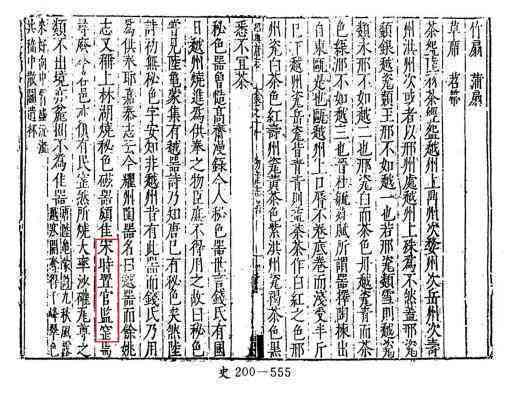 竹扇 蒲扇
草扇 苕帚
茶經盌越州上鼎州次婺州次岳州次壽
州洪州次或者以邢州處越州上殊為不然蓋邢瓷
類銀越瓷類玉邢不如越一也若邢瓷類雪則越瓷
類氷邢不如越二也邢瓷白而茶色丹越瓷青而茶
色綠邢不如越三也晉杜毓荈賦所謂器擇陶揀出
自東甌是也甌越州上口唇不卷底卷而淺受半斤
已下越州瓷岳瓷皆青青則益茶茶作白紅之色邢
州瓷白茶色紅壽州瓷黃茶色紫洪州瓷褐茶色黑
悉不宜茶
秘色器曾慥高齋漫錄今人秘色器世言錢氏有國
日越州燒進為供奉之物臣庶不得用之故曰秘色
嘗見陸龜蒙集有越器詩乃知唐已有秘色矣然陸
詩初無秘色字安知非越州昔有此器而錢氏乃用
為供奉耶嘉泰志云今耀州陶器名曰越器而餘姚
志又稱上林湖燒秘色磁器頗佳宋時置官監窑焉
尋廢今各邑亦俱有民窑然所燒大率沙礶瓦尊之
類不出境亦麄拙不為佳器唐陸龜蒙詩九秋風露
越窑開奪得千峰翠色
來好向中宵盛沆瀣
共嵇中散鬭遺杯
史 200—555